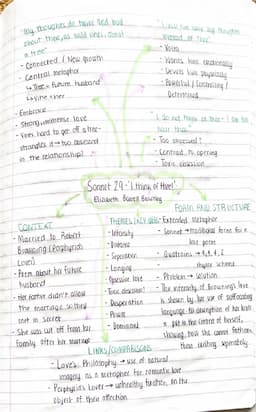 "My thoughts do twine and bud
about thee, as wild vines, about
a tree"
- Connected / New growth
- Central metaphor
↳ Tree = future husband
↳ Vine = her
- Embrace
- Strong, immense love
- Vines hard to get off a tree -
strangles it → too obsessed
in the relationship?
"I will not have my thoughts
instead of thee"
- Volta
- Wants him emotionally
- Desires him physically
- Powerful / Controlling /
Determined
"I do not think of thee - I am too
near thee"
- Too obsessed?
- Contrast to opening
- Toxic obsession
Sonnet 29 - 'I think of thee!'
Elizabeth Barrett Browning
CONTEXT
- Married to Robert
Browning (Porphyria's
Lover)
- Poem about her future
husband
- Her father didn't allow
the marriage so they
met in secret
- She was cut off from her
family after her marriage
THEMES / KEY WORDS
- Intensity
- Distance
- Separation
- Longing
- Obsessive love
- Toxic obsession?
- Desperation
- Power
- Dominant
FORM AND STRUCTURE
- Extended metaphor
- Sonnet → traditional form for a
love poem
- Quatrains → 4, 4, 4, 2
rhyme scheme
- Problem → Solution
- The intensity of Browning's love
is shown by her use of suffocating
language to
showing
LINKS/COMPARISONS
- Love's Philosophy → use of natural
imagery as a metaphor for romantic love
- Porphyria's Lover → unhealthy
object of their affection